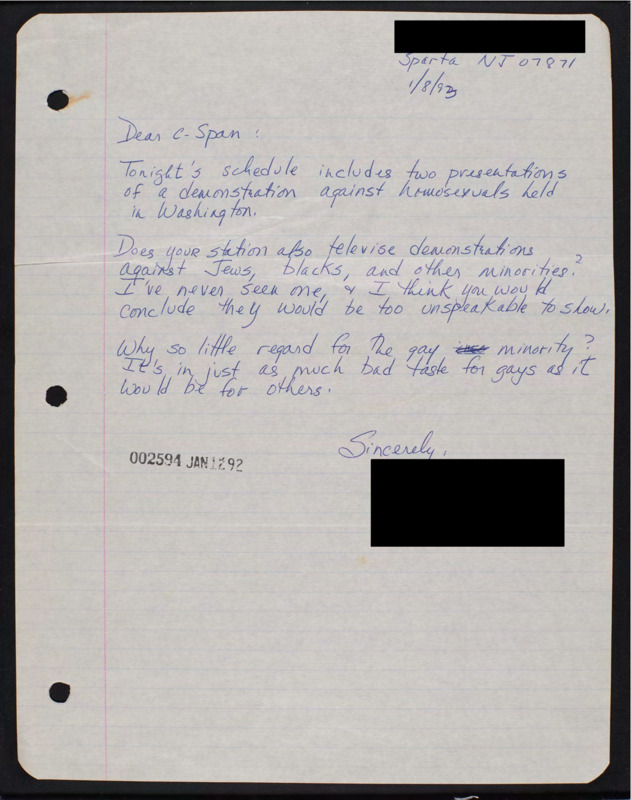 Sparta NJ 07871
1/8/92
Dear C-Span:
Tonight's schedule includes two presentations
of a demonstration against homosexuals held
in Washington.
Does your station also televise demonstrations
against Jews, blacks, and other minorities?
I've never seen one, & I think you would
conclude they would be too unspeakable to show.
Why so little regard for the gay minority?
It's in just as much bad taste for gays as it
would be for others.
Sincerely,
002594 JAN 12 92